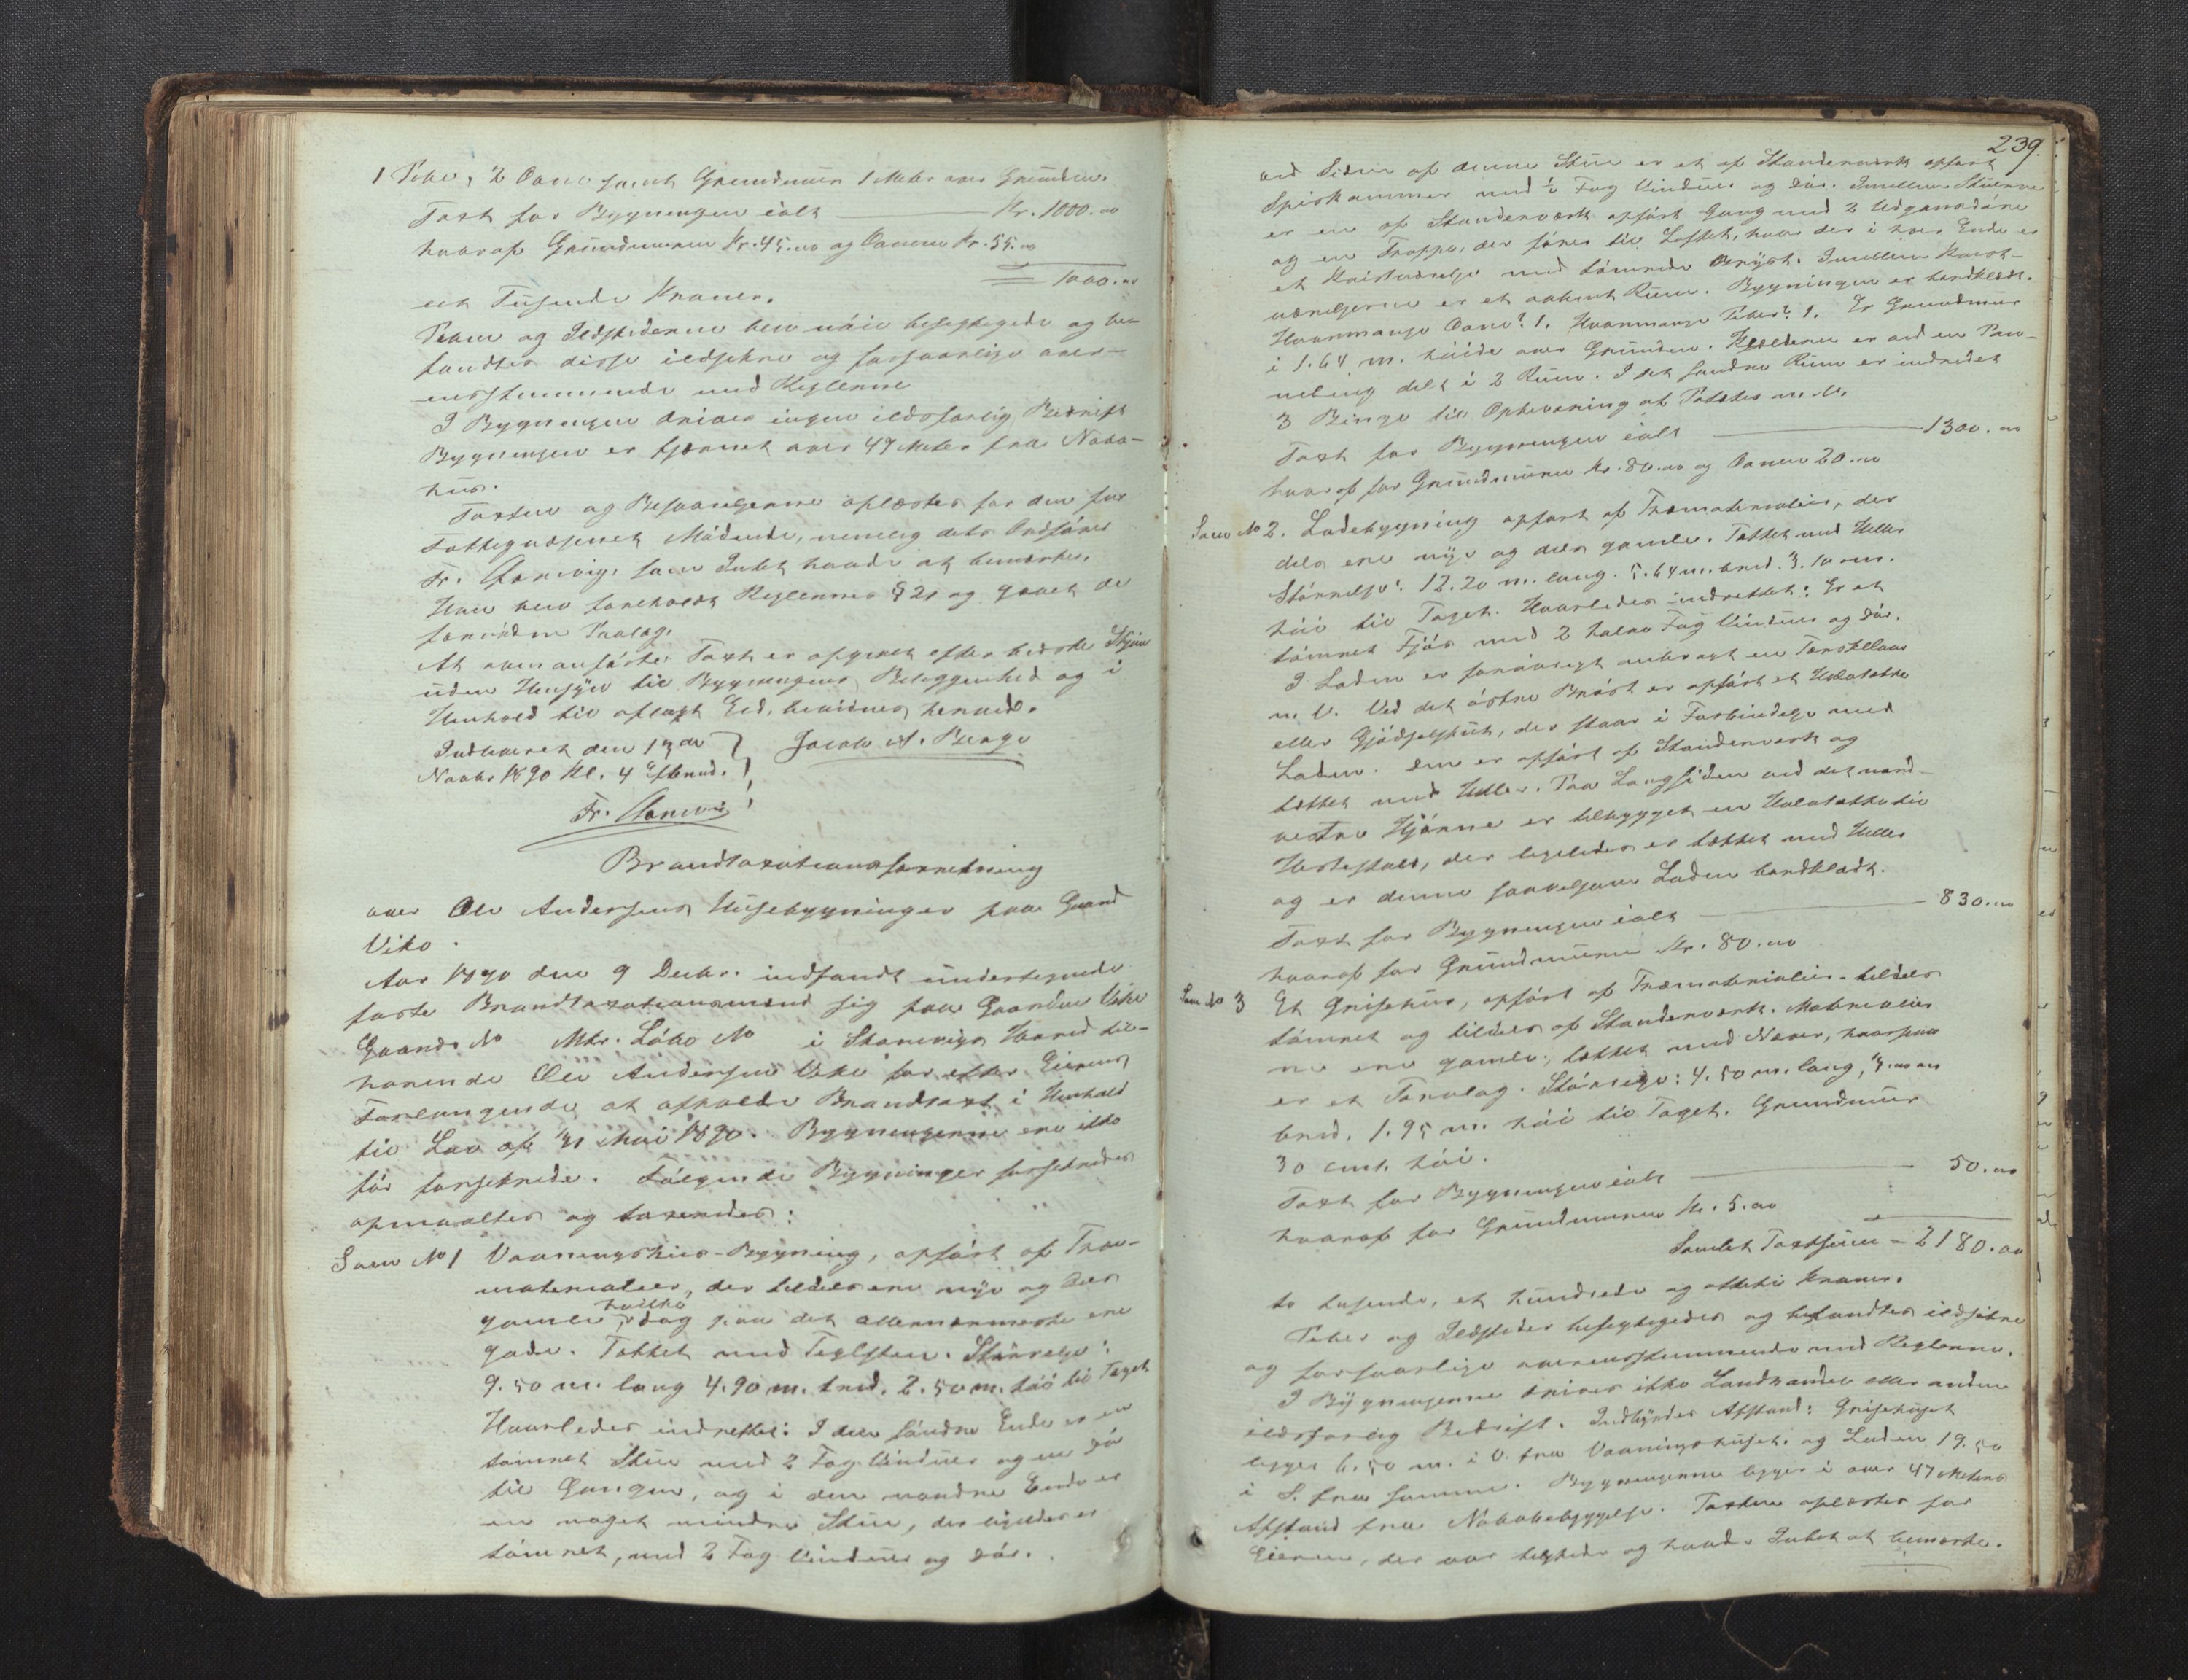 1 Pibe, 2 Ovne samt Grundmur 1 Meter over Grunden.
Taxt for Bygningen ialt Kr. 1000.00
hvoraf Grundmuren Kr. 45.00 og Ovnene Kr. 55.00
= 1000.00
eet Tusende Kroner.
Piben og Ildstederne blev nøie besigtigede og be-
fandtes disse ildsikre og forsvarlige over-
ensstemmende med Reglerne
I Bygningen drives ingen ildsfarlig Bedrift
Bygningen er fjernet over 47 Meter fra Nabo-
hus.
Taxten og Besvarelserne oplæstes for den for
Fattigvæsenet Mødende, nemlig dets Ordfører
Fr. som Intet havde at bemærke.
Han blev foreholdt Reglernes § 21 og gavet de
fornødne Paalæg.
At ovenanførte Taxt er afgivet efter bedste Skjøn
uden Hensyn til Bygningens Beliggenhed og i
Henhold til aflagt Ed, bevidnes herved.
Indleveret den 17de Jacob A. Berge
Novbr 1890 Kl. 4 Eftermd.
Fr.
Brandtaxationsforretning
over Ole Andersens Husebygninger paa Gaard
Viko.
Aar 1890 den 9 Decbr. indfandt undertegnede
faste Brandtaxationsmænd sig paa Gaarden Viko
Gaards No Mtr. Løbe No i Herred til-
hørende Ole Andersen Viko for efter Eierens
Forlangende at afholde Brandtaxt i Henhold
til Lov af 31 Mai 1890. Bygningerne ere ikke
før forsikrede. Følgende Bygninger forsikredes
opmaaltes og taxeredes:
Sam No 1 Vaaningshus-Bygning, opført af Træ-
materialier, der tildels ere nye og dels
gamle, hvilke dog paa det allernærmeste ere
gode. Tækket med Teglsten. Størrelse:
9.50 m. lang 4.90 m. bred. 2.50 m. høi til Taget
Hvorledes indrettet: I den søndre Ende er en
tømret Stue med 2 Fag Vinduer og en Dør
til Gangen, og i den nordre Ende er
en noget mindre Stue, der ligeledes er
tømret, med 2 Fag Vinduer og Dør.
239.
ved Siden af denne Stue er et af Standerværk opført
Spiskammer med ½ Fag Vinduer og Dør. Imellem Stuerne
er en af Standerværk opført Gang med 2 Udgangsdøre
og en Trappe, der fører til Loftet, hvor der i hver Ende er
et Kvistværelse med tømrede Bryst. Imellem Kvist-
værelserne er et aabent Rum. Bygningen er bordklædt.
Hvormange Ovne? 1. Hvormange Piber? 1. Er Grundmur
i 1.64 m. Høide over Grunden. Kjelderen er ved en Pan-
neling delt i 2 Rum. I det søndre Rum er indredet
3 Binge til Opbevaring af Poteter m. M.
Taxt for Bygningen ialt 1300.00
hvoraf for Grundmuren Kr. 80.00 og Ovnen 20.00
Sam No 2. Ladebygning opført af Træmaterialier, der
dels ere nye og dels gamle. Tækket med Heller
Størrelse: 12.20 m. lang. 5.64 m. bred. 3.10 m.
høi til Taget. Hvorledes indrettet: Er et
tømret Fjøs med 2 halve Fag Vinduer og Dør.
I Laden er forøvrigt anbragt en Tærskelaave
m. V. Ved det østre Brøst er opført et Halvtække
eller Gjødselskut, der staar i Forbindelse med
Laden. Den er opført af Standerværk og
tækket med Heller. Paa Langsiden ved det nord-
vestre Hjørne er tilbygget en Halvtække til
Hestestald, der ligeledes er tækket med Heller
og er denne saavelsom Laden bordklædt.
Taxt for Bygningen ialt 830.00
hvoraf for Grundmuren Kr. 80.00
Sam No 3 Et Grisehus, opført af Træmaterialier tildels
tømret og tildels af Standerværk. Materialier
ne ere gamle; tækket med Næver, hvorpaa
er et Torvlag. Størrelse: 4.50 m. lang, 3.00 m
bred. 1.95 m. høi til Taget. Grundmur
30 cmt. høi.
Taxt for Bygningen ialt 50.00
hvoraf for Grundmuren Kr. 5.00
Samlet Taxtsum – 2180.00
to tusende, et hundrede og otteti Kroner.
Piber og Ildsteder besigtigedes og befandtes ildsikre
og forsvarlige overensstemmende med Reglerne.
I Bygningerne drives ikke Landhandel eller anden
ildsfarlig Bedrift. Indbyrdes Afstand: Grisehuset
ligger 6.50 m. i V. fra Vaaningshuset og Laden 19.50
i S. fra samme. Bygningerne ligger i over 47 Meters
Afstand fra Nabobebyggelse. Taxten oplæstes for
Eieren, der var tilstede og havde Intet at bemærke.